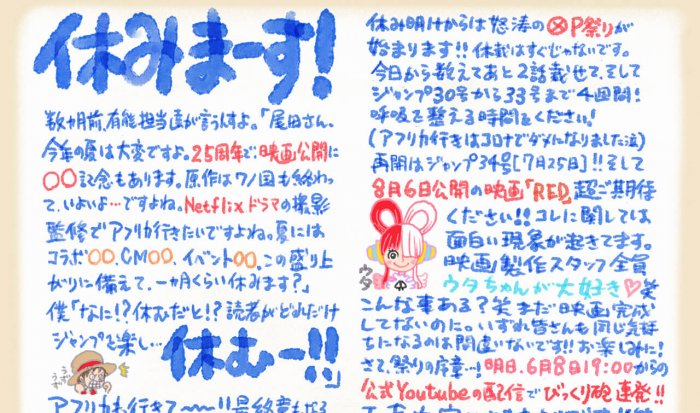 休みまーす!
数ヶ月前、有能担当達が言うんすよ。「尾田さん、
今年の夏は大変ですよ。25周年で、映画公開に
〇〇記念もあります。原作はワノ国も終わっ
て、いよいよ…ですよね。Netflixドラマの撮影
監修でアフリカ行きたいですよね。夏には
コラボ〇〇、CM〇〇、イベント〇〇。この盛り上
がりに備えて、一ヵ月くらい休みます?」
僕「なに!?休むだと!?読者がどれだけ
ジャンプを楽し…休むー!!」
うずうず
アフリカも行きて〜〜!!最終章もやる
休み明けからは怒涛の㋻P祭りが
始まります!!休載はすぐじゃないです。
今日から数えてあと2話載せて、そして
ジャンプ30号から33号まで4週間!
呼吸を整える時間をください!
(アフリカ行きはコロナでダメになりました泣)
再開はジャンプ34号[7月25日]!!そして
8月6日公開の映画「RED」超ご期待
ください!!コレに関しては
面白い現象が起きてます。
映画製作スタッフ全員
ウタちゃんが大好き♡笑
ウタ
こんな事ある?笑まだ映画完成
してないのに。いずれ皆さんも同じ気持
ちになるのは間違いないです!!お楽しみに!
さて、祭りの序章…!明日、6月8日19:00からの
公式Youtubeの配信で びっくり砲連発!!